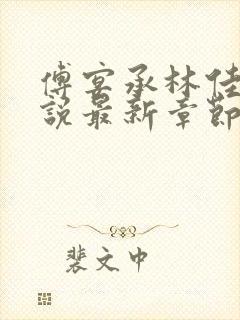 傅宴承林佳
說最新章節
裴文中